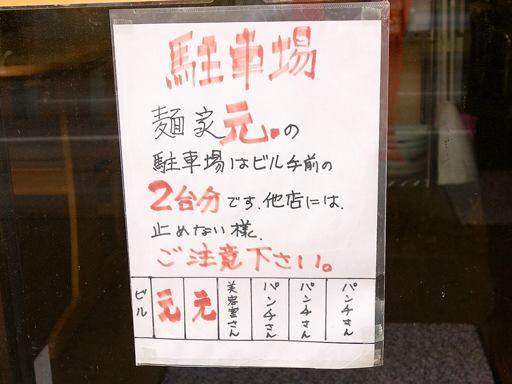 駐車場
麺家元。の
駐車場はビル手前の
2台分です。他店には、
止めない様、
ご注意下さい。
ビル
元
元
美容室さん
パンチさん
パンチさん
パンチさん